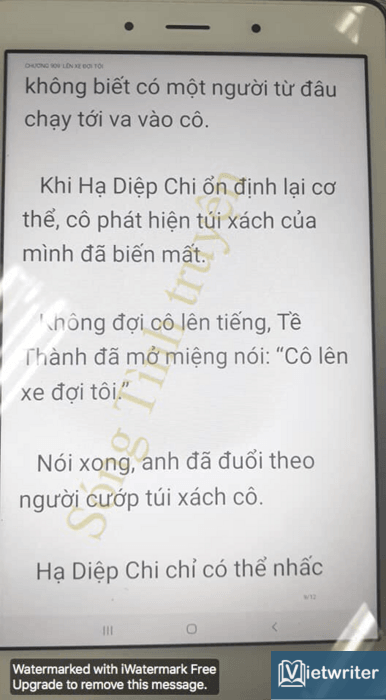 không biết có một người từ đâu
chạy tới va vào cô.
Khi Hạ Diệp Chi ổn định lại cơ
thể, cô phát hiện túi xách của
mình đã biến mất.
Không đợi cô lên tiếng, Tề
Thành đã mở miệng nói: “Cô lên
xe đợi tôi.”
Nói xong, anh đã đuổi theo
người cướp túi xách cô.
Hạ Diệp Chi chỉ có thể nhấc
9/12
Sóng Tình truyện
Watermarked with iWatermark Free
Upgrade to remove this message.
Vietwriter